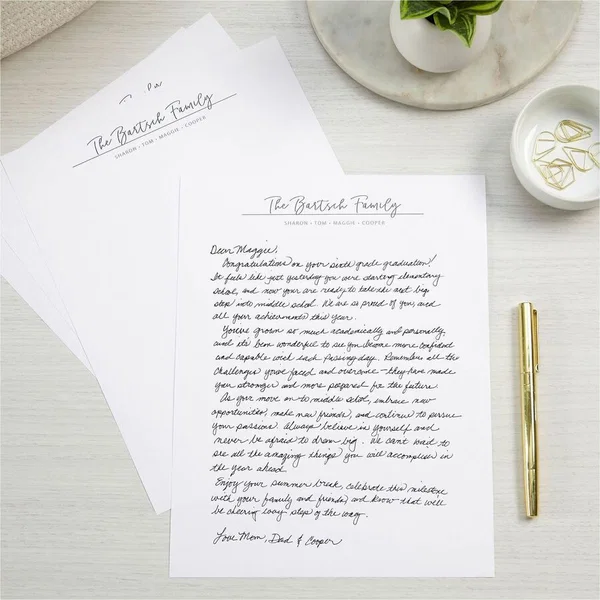 The Bartsch Family
SHARON • TOM • MAGGIE • COOPER
The Bartsch Family
SHARON • TOM • MAGGIE • COOPER
Dear Maggie,
Congratulations on your sixth grade graduation!
It feels like just yesterday you were starting elementary
school, and now your are ready to take the next big
step into middle school. We are so proud of you, and
all your achievements this year.
You've grown so much academically and personally,
and its been wonderful to see you become more confident
and capable with each passing day. Remember all the
challenges you've faced and overcome - they have made
you stronger and more prepared for the future.
As your move on to middle school, embrace new
opportunities, make new friends, and continue to pursue
your passions. Always believe in yourself and
never be afraid to dream big. We can't wait to
see all the amazing things you will accomplish in
the year ahead.
Enjoy your summer break, celebrate this milestone
with your family and friends, and know that will
be cheering every step of the way.
Love Mom, Dad & Cooper